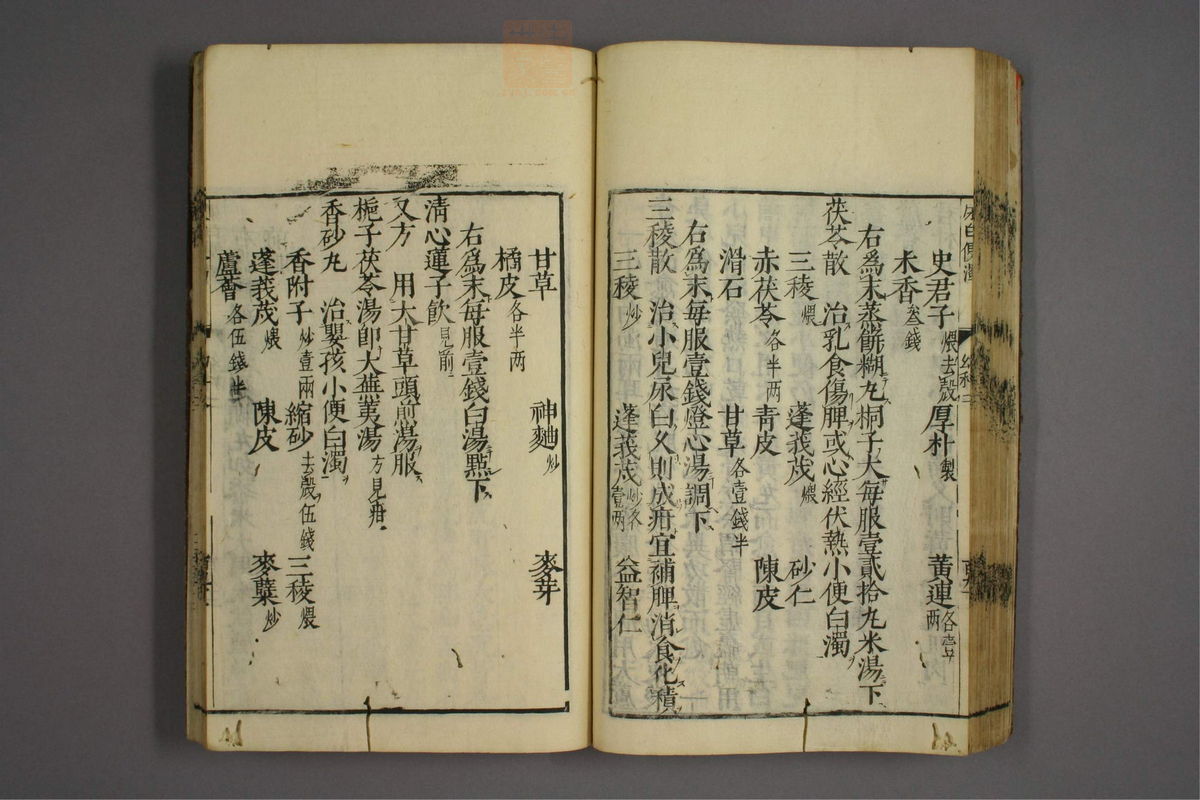 史君子煨去殻 厚朴製 黄連各壹两
木香叁錢
右爲末蒸餅糊丸桐子大毎服壹貳拾丸米湯下
茯苓散 治乳食傷脾或心經伏熱小便白濁
三稜煨 蓬莪茂煨 砂仁
赤茯苓各半两 青皮 陳皮
滑石 甘草各壹錢半
右爲末毎服壹錢燈心湯調下
三稜散 治小兒尿白久則成疳宜補脾消食化積
三稜炒 蓬莪茂炒各壹两 益智仁
甘草 神麯炒 麥芽
橘皮各半两
右爲末毎服壹錢白湯點下
清心蓮子飲見前
又方 用大甘草頭煎湯服
梔子茯苓湯即大蕪荑湯方見疳
香砂丸 治嬰孩小便白濁
香附子炒壹兩 縮砂去殻伍錢 三稜煨
蓬莪茂煨 陳皮 麥蘖炒
蘆薈各伍錢半